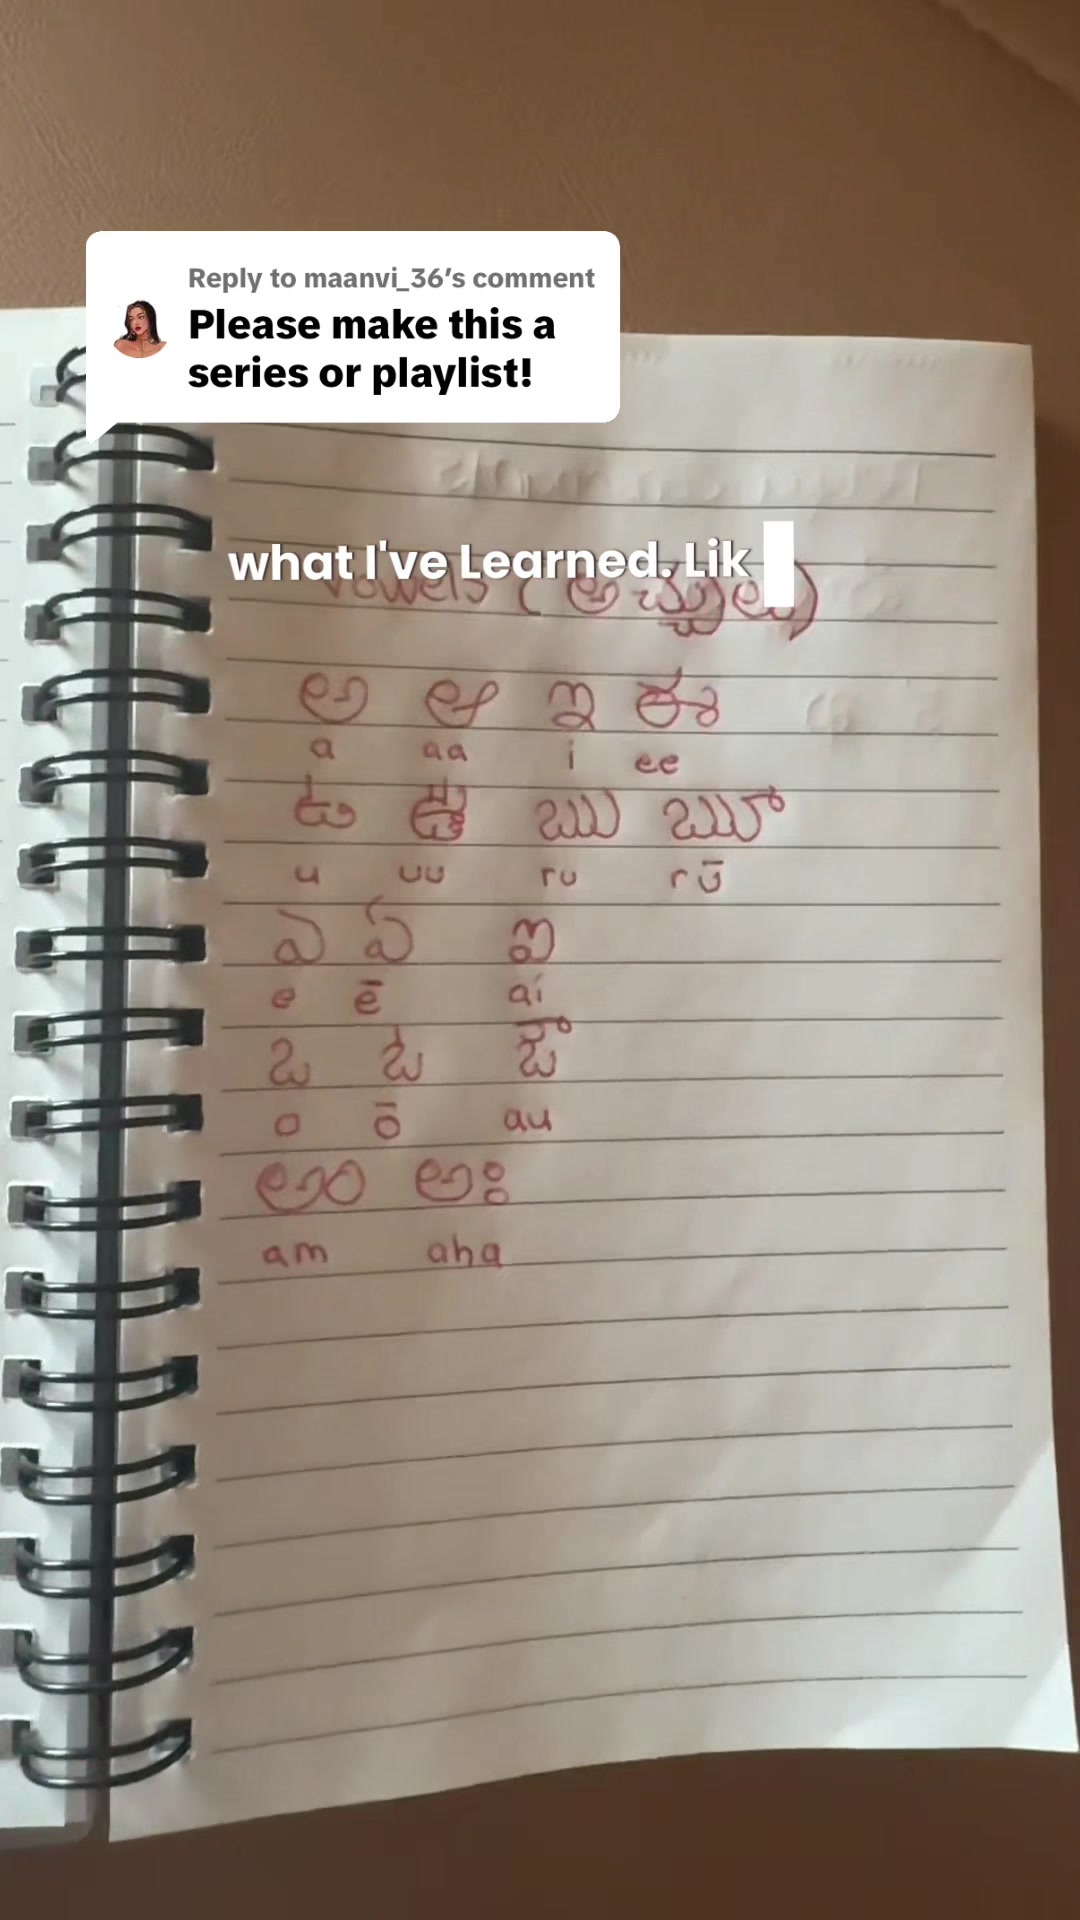 Reply to maanvi_36's comment
Please make this a
series or playlist!
what I've Learned. Lik
Vowels (అచ్చులు)
అ ఆ ఇ ఈ
a aa i ee
ఉ ఊ ఋ ౠ
u uu ru rū
ఎ ఏ ఐ
e ē ai
ఒ ఓ ఔ
o ō au
అం అః
am aha